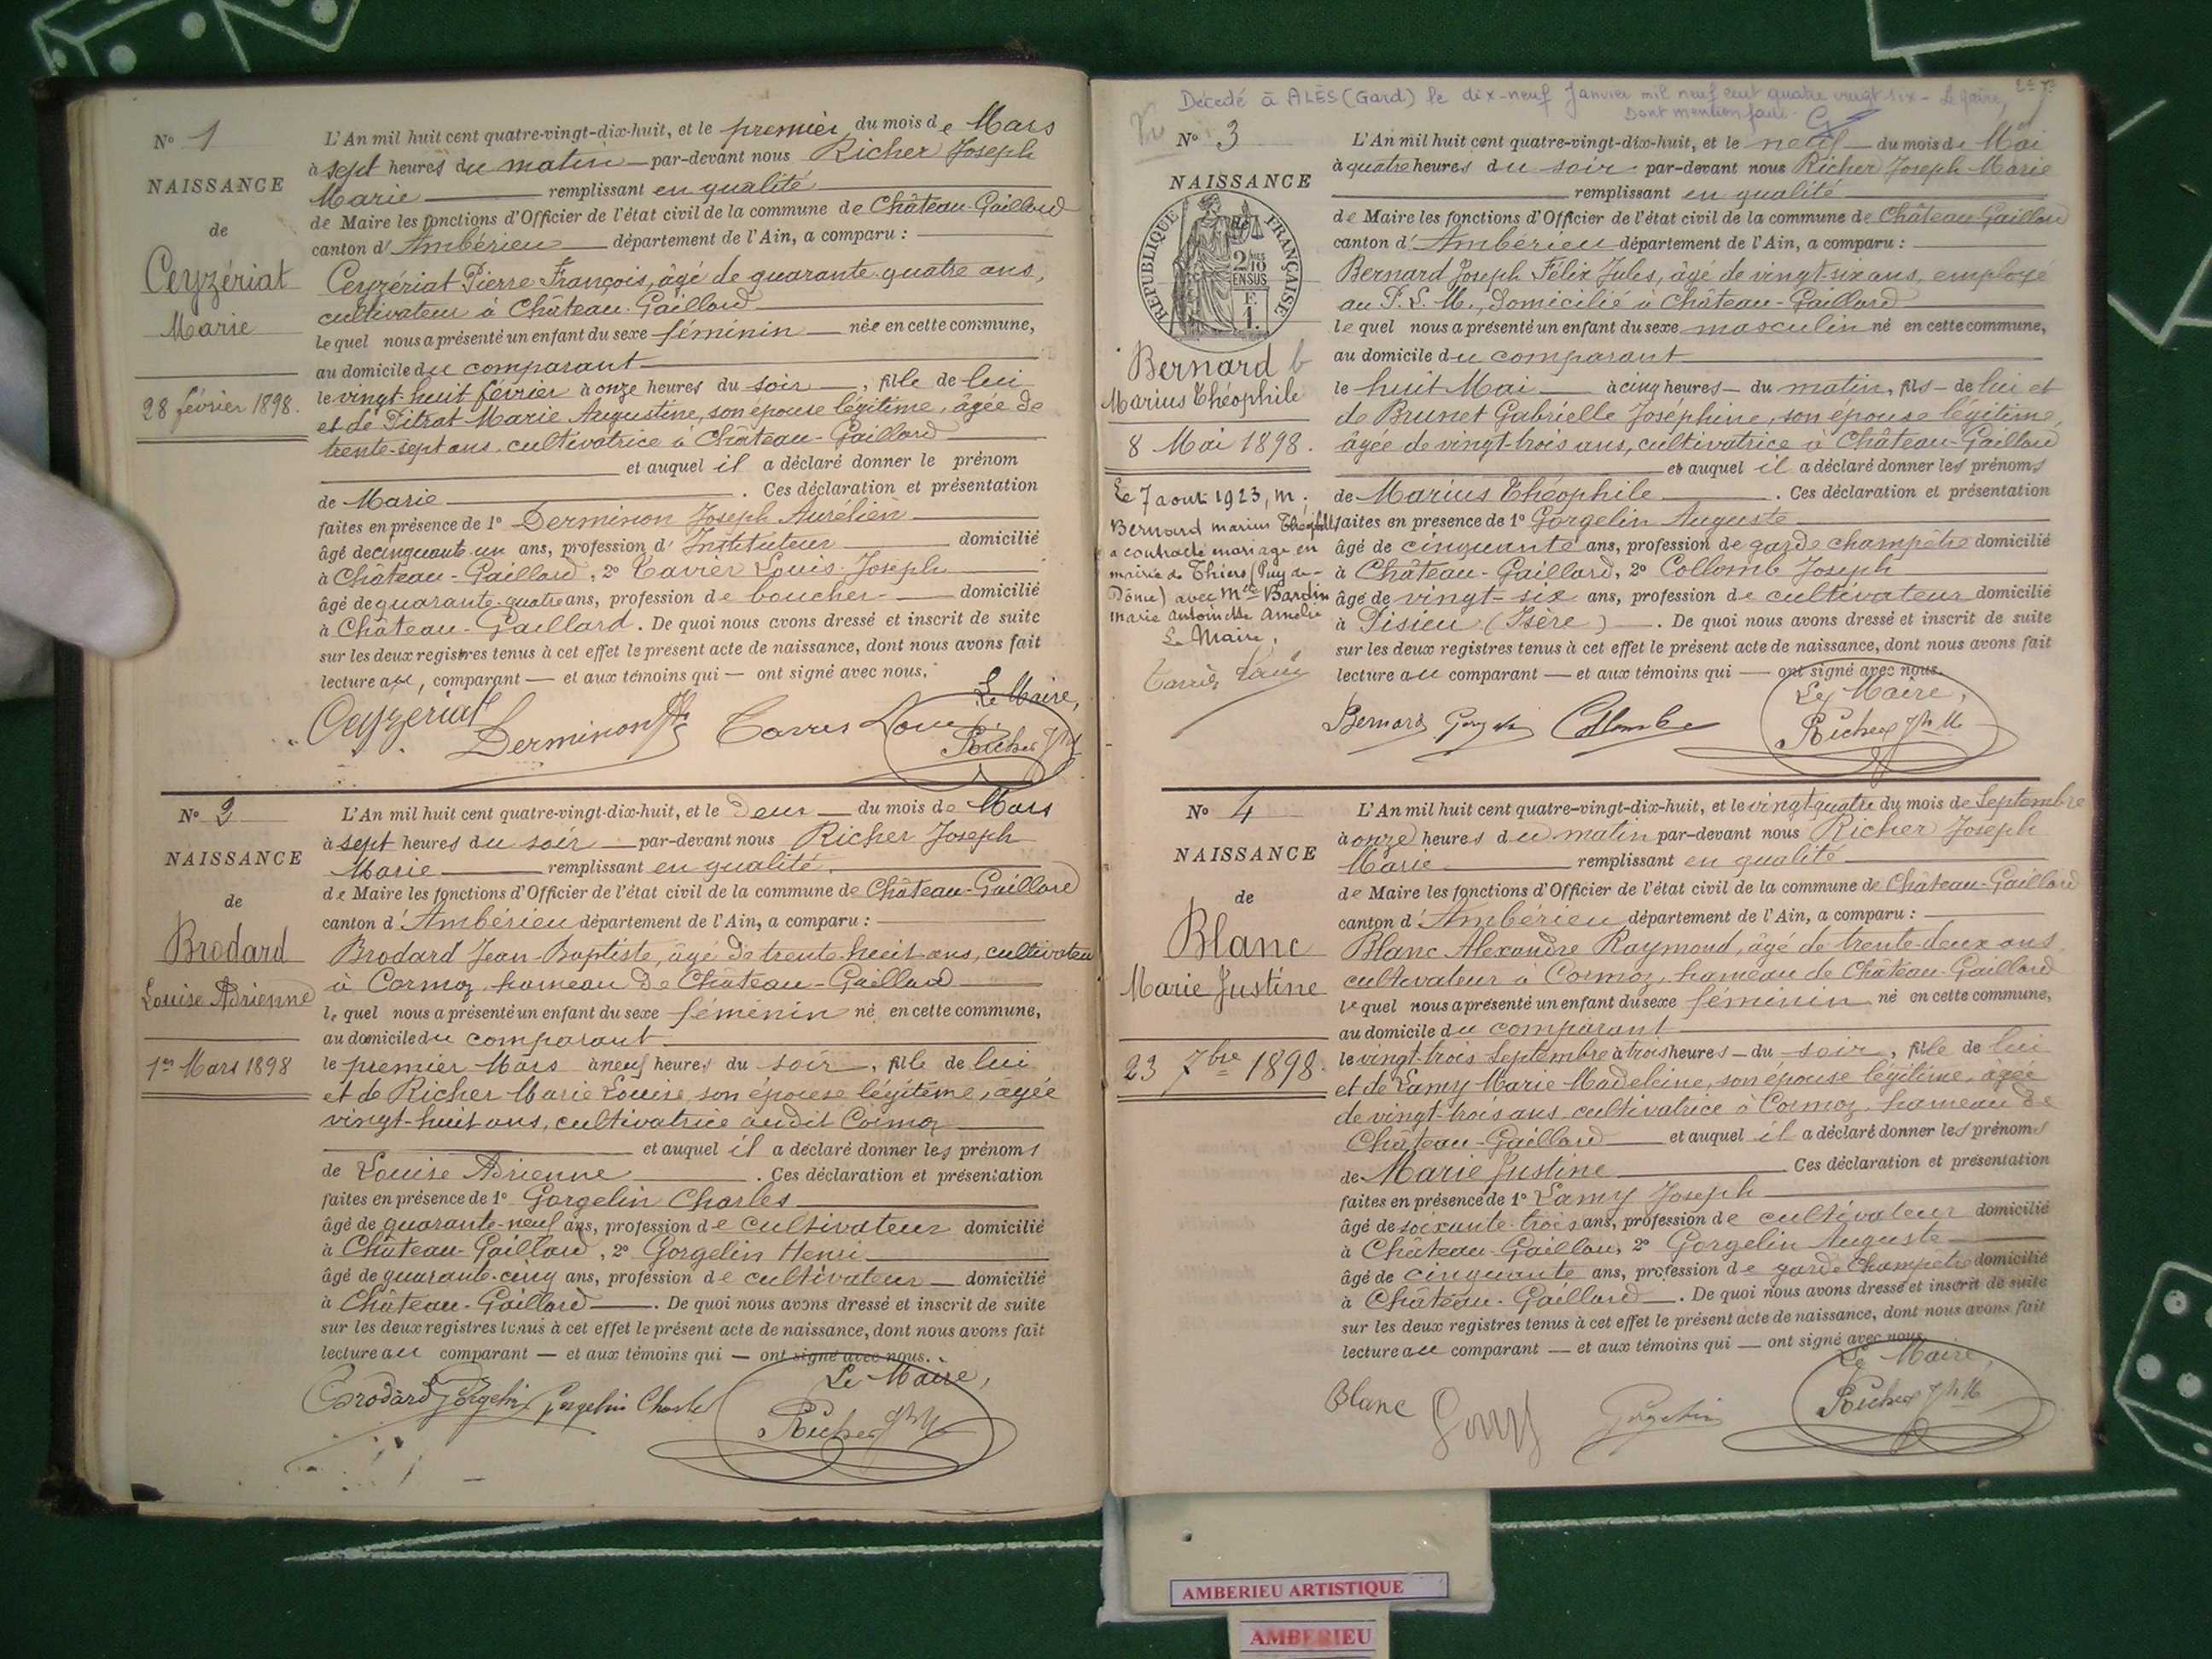 N° 1
NAISSANCE
de
Ceyzériat
Marie
28 février 1898.
L'An mil huit cent quatre-vingt-dix-huit, et le premier du mois de Mars
à sept heures du matin par-devant nous Richer Joseph
Marie remplissant en qualité
de Maire les fonctions d'Officier de l'état civil de la commune de Château-Gaillard
canton d'Ambérieu département de l'Ain, a comparu :
Ceyzériat Pierre François, âgé de quarante-quatre ans,
cultivateur à Château-Gaillard
lequel nous a présenté un enfant du sexe féminin née en cette commune,
au domicile du comparant
le vingt-huit février à onze heures du soir, fille de lui
et de Pitrat Marie Augustine, son épouse légitime, âgée de
trente-sept ans, cultivatrice à Château-Gaillard
et auquel il a déclaré donner le prénom
de Marie. Ces déclaration et présentation
faites en présence de 1° Derminon Joseph Aurélien
âgé de cinquante-un ans, profession d'Instituteur domicilié
à Château-Gaillard, 2° Tavier Louis Joseph
âgé de quarante-quatre ans, profession de boucher domicilié
à Château-Gaillard. De quoi nous avons dressé et inscrit de suite
sur les deux registres tenus à cet effet le présent acte de naissance, dont nous avons fait
lecture au, comparant — et aux témoins qui — ont signé avec nous.
Le Maire,
Ceyzériat Derminon Richer
N° 2
NAISSANCE
de
Brodard
Louise Adrienne
1er Mars 1898
L'An mil huit cent quatre-vingt-dix-huit, et le deux du mois de Mars
à sept heures du soir par-devant nous Richer Joseph
Marie remplissant en qualité
de Maire les fonctions d'Officier de l'état civil de la commune de Château-Gaillard
canton d'Ambérieu département de l'Ain, a comparu :
Brodard Jean-Baptiste, âgé de trente-huit ans, cultivateur
à Cormoz, hameau de Château-Gaillard
lequel nous a présenté un enfant du sexe féminin né en cette commune,
au domicile du comparant
le premier Mars à neuf heures du soir, fille de lui
et de Richer Marie Louise, son épouse légitime, âgée
vingt-huit ans, cultivatrice audit Cormoz
et auquel il a déclaré donner les prénoms
de Louise Adrienne. Ces déclaration et présentation
faites en présence de 1° Gorgelin Charles
âgé de quarante-neuf ans, profession de cultivateur domicilié
à Château-Gaillard, 2° Gorgelin Henri
âgé de quarante-cinq ans, profession de cultivateur domicilié
à Château-Gaillard. De quoi nous avons dressé et inscrit de suite
sur les deux registres tenus à cet effet le présent acte de naissance, dont nous avons fait
lecture au comparant — et aux témoins qui — ont signé avec nous.
Le Maire,
Brodard Gorgelin Gorgelin Charles Richer
Décédé à ALÈS (Gard) le dix-neuf Janvier mil neuf cent quatre vingt six - Le
Dont mention faite.
N° 3
NAISSANCE
REPUBLIQUE FRANÇAISE
2/10 EN SUS
F. 1.
Bernard
Marius Théophile
8 Mai 1898.
Le 7 aout 1923, m.
Bernard marius Théophile
a contracté mariage en
mairie de Thiers (Puy-de-
Dôme) avec Mlle Bardin
marie Antoinette Amélie
Le Maire,
L'An mil huit cent quatre-vingt-dix-huit, et le neuf du mois de Mai
à quatre heures du soir par-devant nous Richer Joseph Marie
remplissant en qualité
de Maire les fonctions d'Officier de l'état civil de la commune de Château-Gaillard
canton d'Ambérieu département de l'Ain, a comparu :
Bernard Joseph Félix Jules, âgé de vingt-six ans, employé
au P. L. M., domicilié à Château-Gaillard
lequel nous a présenté un enfant du sexe masculin né en cette commune,
au domicile du comparant
le huit Mai à cinq heures du matin, fils de lui et
de Brunet Gabrielle Joséphine, son épouse légitime,
âgée de vingt-trois ans, cultivatrice à Château-Gaillard
et auquel il a déclaré donner les prénoms
de Marius Théophile. Ces déclaration et présentation
faites en présence de 1° Gorgelin Auguste
âgé de cinquante ans, profession de garde champêtre domicilié
à Château-Gaillard, 2° Collomb Joseph
âgé de vingt-six ans, profession de cultivateur domicilié
à Pisieu (Isère). De quoi nous avons dressé et inscrit de suite
sur les deux registres tenus à cet effet le présent acte de naissance, dont nous avons fait
lecture au comparant — et aux témoins qui — ont signé avec nous.
Le Maire,
Bernard Collomb Richer Jh M
N° 4
NAISSANCE
de
Blanc
Marie Justine
23 7bre 1898.
L'An mil huit cent quatre-vingt-dix-huit, et le vingt-quatre du mois de Septembre
à onze heures du matin par-devant nous Richer Joseph
Marie remplissant en qualité
de Maire les fonctions d'Officier de l'état civil de la commune de Château-Gaillard
canton d'Ambérieu département de l'Ain, a comparu :
Blanc Alexandre Raymond, âgé de trente-deux ans
cultivateur à Cormoz, hameau de Château-Gaillard
lequel nous a présenté un enfant du sexe féminin né en cette commune,
au domicile du comparant
le vingt-trois Septembre à trois heures du soir, fille de lui
et de Lamy Marie Madeleine, son épouse légitime, âgée
de vingt-trois ans, cultivatrice à Cormoz, hameau de
Château-Gaillard et auquel il a déclaré donner les prénoms
de Marie Justine Ces déclaration et présentation
faites en présence de 1° Lamy Joseph
âgé de soixante-trois ans, profession de cultivateur domicilié
à Château-Gaillard, 2° Gorgelin Auguste
âgé de cinquante ans, profession de garde champêtre domicilié
à Château-Gaillard. De quoi nous avons dressé et inscrit de suite
sur les deux registres tenus à cet effet le présent acte de naissance, dont nous avons fait
lecture au comparant — et aux témoins qui — ont signé avec nous.
Le Maire,
Blanc Gorgelin Richer Jh M
AMBERIEU ARTISTIQUE
AMBERIEU